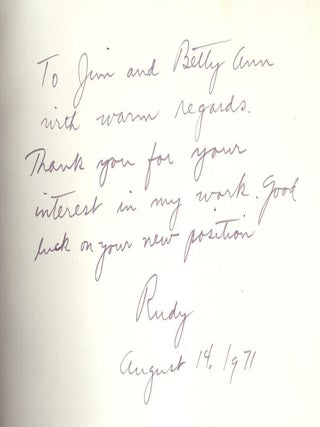 To Jim and Betty Ann
with warm regards.
Thank you for your
interest in my work. Good
luck on your new position
Rudy
August 14, 1971